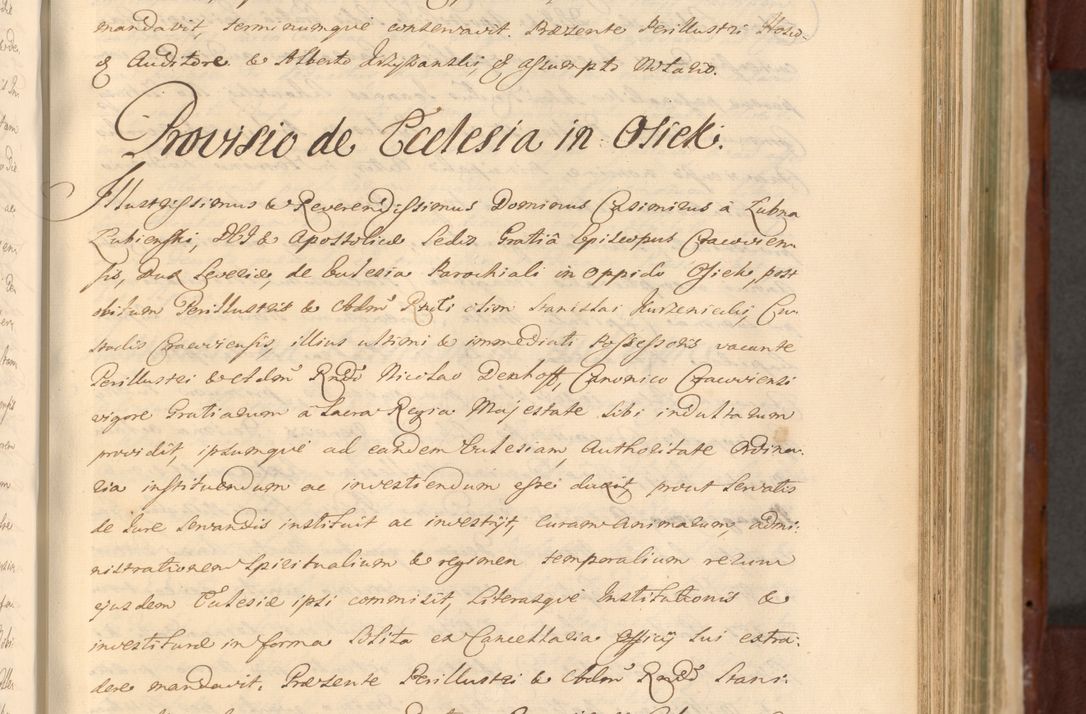 mandavit, terminumque conservavit. Præsente Perillustri Hosio-
& Auditore & Alberto Krzyskanski, & assumpto Notario.
Provisio de Ecclesia in Osiek.
Illustrissimus & Reverendissimus Dominus Casimirus à Lubna
Lubienski, DEI & Apostolicæ Sedis Gratiâ Episcopus Cracovien-
sis, Dux Severiæ, de Ecclesia Parochiali in oppido Osiek, post
obitum Perillustris & Adm̃ Rndi olim Stanislai Kuszenicki, Cu-
stodis Cracoviensis, illius ultimi & immediati possessoris vacante
Perillustri & Adm̃ Rndõ Nicolao Denhoff, Canonico Cracoviensi
vigore Gratiarum à Sacra Regia Majestate sibi indultarum
providit, ipsumque ad eandem Ecclesiam, Authoritate Ordina-
ria instituendum ac investiendum esse duxit, prout servatis
de Jure servandis instituit ac investijt, curam animarum, admi-
nistrationem spiritualium & regimen temporalium rerum
ejusdem Ecclesiæ ipsi commisit, Literasque Institutionis &
investituræ in forma solita ex Cancellaria Officij sui extra-
dere mandavit. Præsente Perillustri & Adm̃ Rndõ Stani-